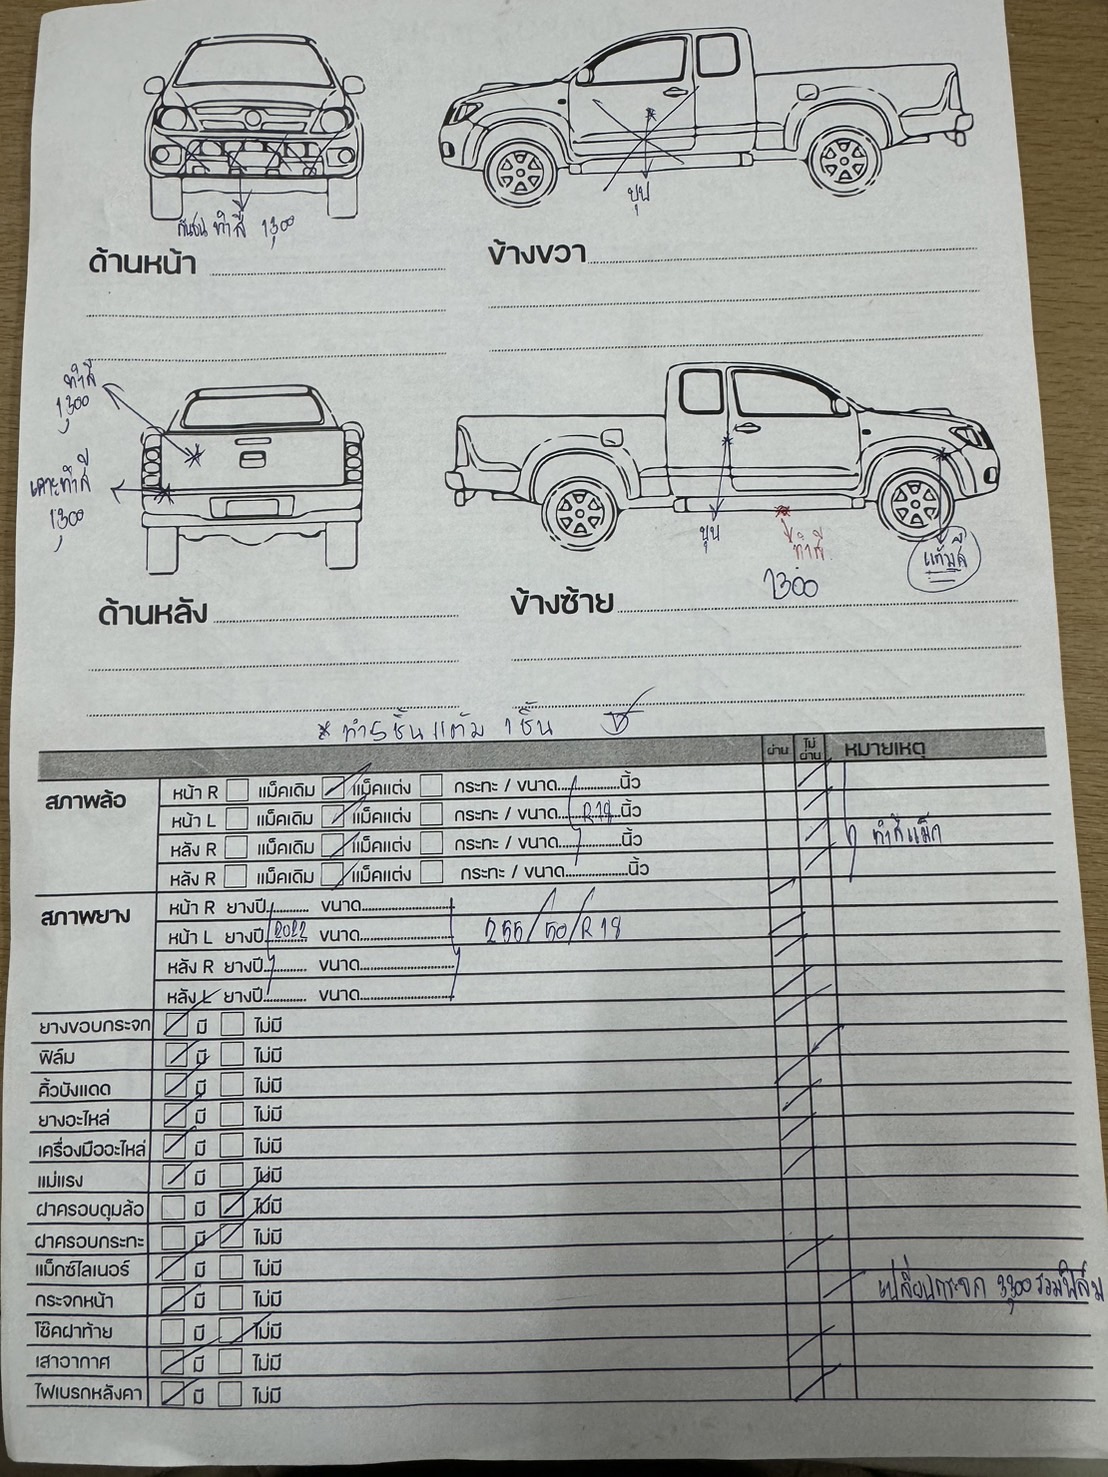 กันชน ทำสี 1,300
บุบ
ด้านหน้า
ข้างขวา
ทำสี
1,300
เคาะทำสี
1,300
บุบ
ทำสี
1300
แต้มสี
ด้านหลัง
ข้างซ้าย
* ทำ 5 ชิ้น แต้ม 1 ชิ้น
ผ่าน ไม่ผ่าน หมายเหตุ
สภาพล้อ หน้า R แม็คเดิม แม็คแต่ง กระทะ / ขนาด นิ้ว
หน้า L แม็คเดิม แม็คแต่ง กระทะ / ขนาด R18 นิ้ว
หลัง R แม็คเดิม แม็คแต่ง กระทะ / ขนาด นิ้ว ทำสีแม็ก
หลัง R แม็คเดิม แม็คแต่ง กระทะ / ขนาด นิ้ว
สภาพยาง หน้า R ยางปี ขนาด
หน้า L ยางปี 2022 ขนาด 255/50/R18
หลัง R ยางปี ขนาด
หลัง L ยางปี ขนาด
ยางขอบกระจก มี ไม่มี
ฟิล์ม มี ไม่มี
คิ้วบังแดด มี ไม่มี
ยางอะไหล่ มี ไม่มี
เครื่องมืออะไหล่ มี ไม่มี
แม่แรง มี ไม่มี
ฝาครอบดุมล้อ มี ไม่มี
ฝาครอบกระทะ มี ไม่มี
แม็กซ์ไลเนอร์ มี ไม่มี
กระจกหน้า มี ไม่มี เปลี่ยนกระจก 3,300 รวมฟิล์ม
โช๊คฝาท้าย มี ไม่มี
เสาอากาศ มี ไม่มี
ไฟเบรกหลังคา มี ไม่มี